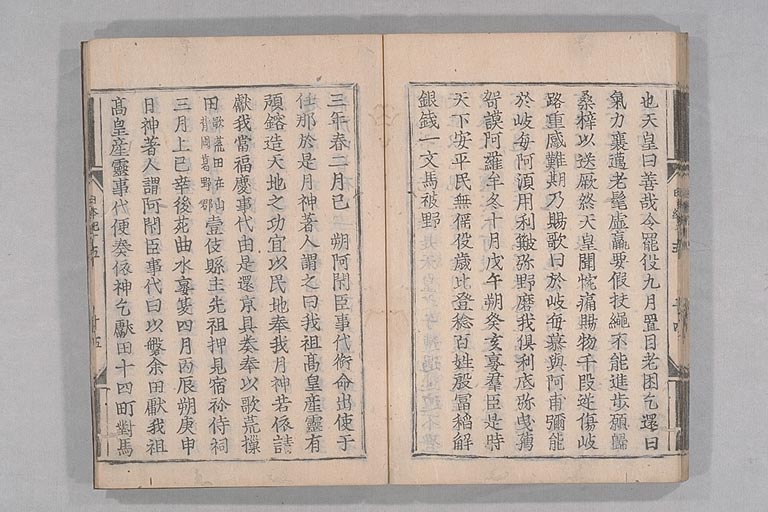 也天皇曰善哉令罷役九月置目老困乞還曰
氣力衰邁老耄虛羸要假扶繩不能進步願歸
桑梓以送厥終天皇聞惋痛賜物千段逆傷岐
路重感難期乃賜歌曰於岐毎慕與阿甫彌能
於岐毎阿須用利簸弥野磨我倶利底弥曳孺
哿謨阿羅牟冬十月戊午朔癸亥宴羣臣是時
天下安平民無徭役歳比登稔百姓殷冨稻斛
銀錢一文馬被野
三年春二月己朔阿閇臣事代銜命出使于
任那於是月神著人謂之曰我祖髙皇産靈有
預鎔造天地之功宜以民地奉我月神若依請
獻我當福慶事代由是還京具奏奉以歌荒樔
田歌荒田在山背國葛野郡壹伎縣主先祖押見宿祢侍祠
三月上巳幸後苑曲水宴夏四月丙辰朔庚申
日神著人謂阿閇臣事代曰以磐余田獻我祖
髙皇産靈事代便奏依神乞獻田十四町對馬